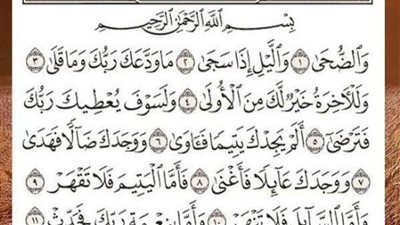 بِسْمِ اللَّهِ الرَّحْمَٰنِ الرَّحِيمِ
وَالضُّحَىٰ ١ وَاللَّيْلِ إِذَا سَجَىٰ ٢ مَا وَدَّعَكَ رَبُّكَ وَمَا قَلَىٰ ٣
وَلَلْآخِرَةُ خَيْرٌ لَّكَ مِنَ الْأُولَىٰ ٤ وَلَسَوْفَ يُعْطِيكَ رَبُّكَ
فَتَرْضَىٰ ٥ أَلَمْ يَجِدْكَ يَتِيمًا فَآوَىٰ ٦ وَوَجَدَكَ ضَالًّا فَهَدَىٰ
٧ وَوَجَدَكَ عَائِلًا فَأَغْنَىٰ ٨ فَأَمَّا الْيَتِيمَ فَلَا تَقْهَرْ
٩ وَأَمَّا السَّائِلَ فَلَا تَنْهَرْ ١٠ وَأَمَّا بِنِعْمَةِ رَبِّكَ فَحَدِّثْ ١١